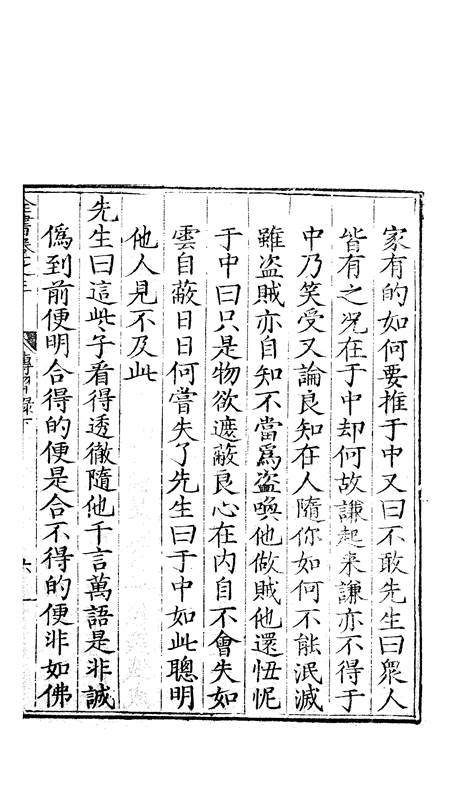 家有的如何要推于中又曰不敢先生曰衆人
皆有之况在于中却何故謙起来謙亦不得于
中乃笑受又論良知在人隨你如何不能泯滅
雖盗賊亦自知不當爲盗喚他做賊他還忸怩
于中曰只是物欲遮蔽良心在内自不會失如
雲自蔽日日何嘗失了先生曰于中如此聰明
他人見不及此
先生曰這些子看得透徹隨他千言萬語是非誠
僞到前便明合得的便是合不得的便非如佛